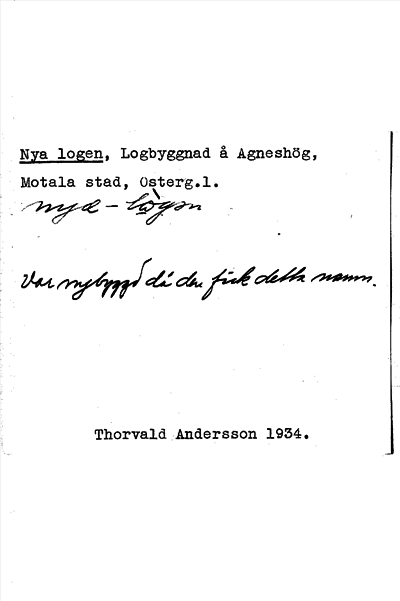 Nya logen, Logbyggnad å Agneshög,
Motala stad, Österg.l.
nya - lògen
Var nybyggd då den fick detta namn.
Thorvald Andersson 1934.